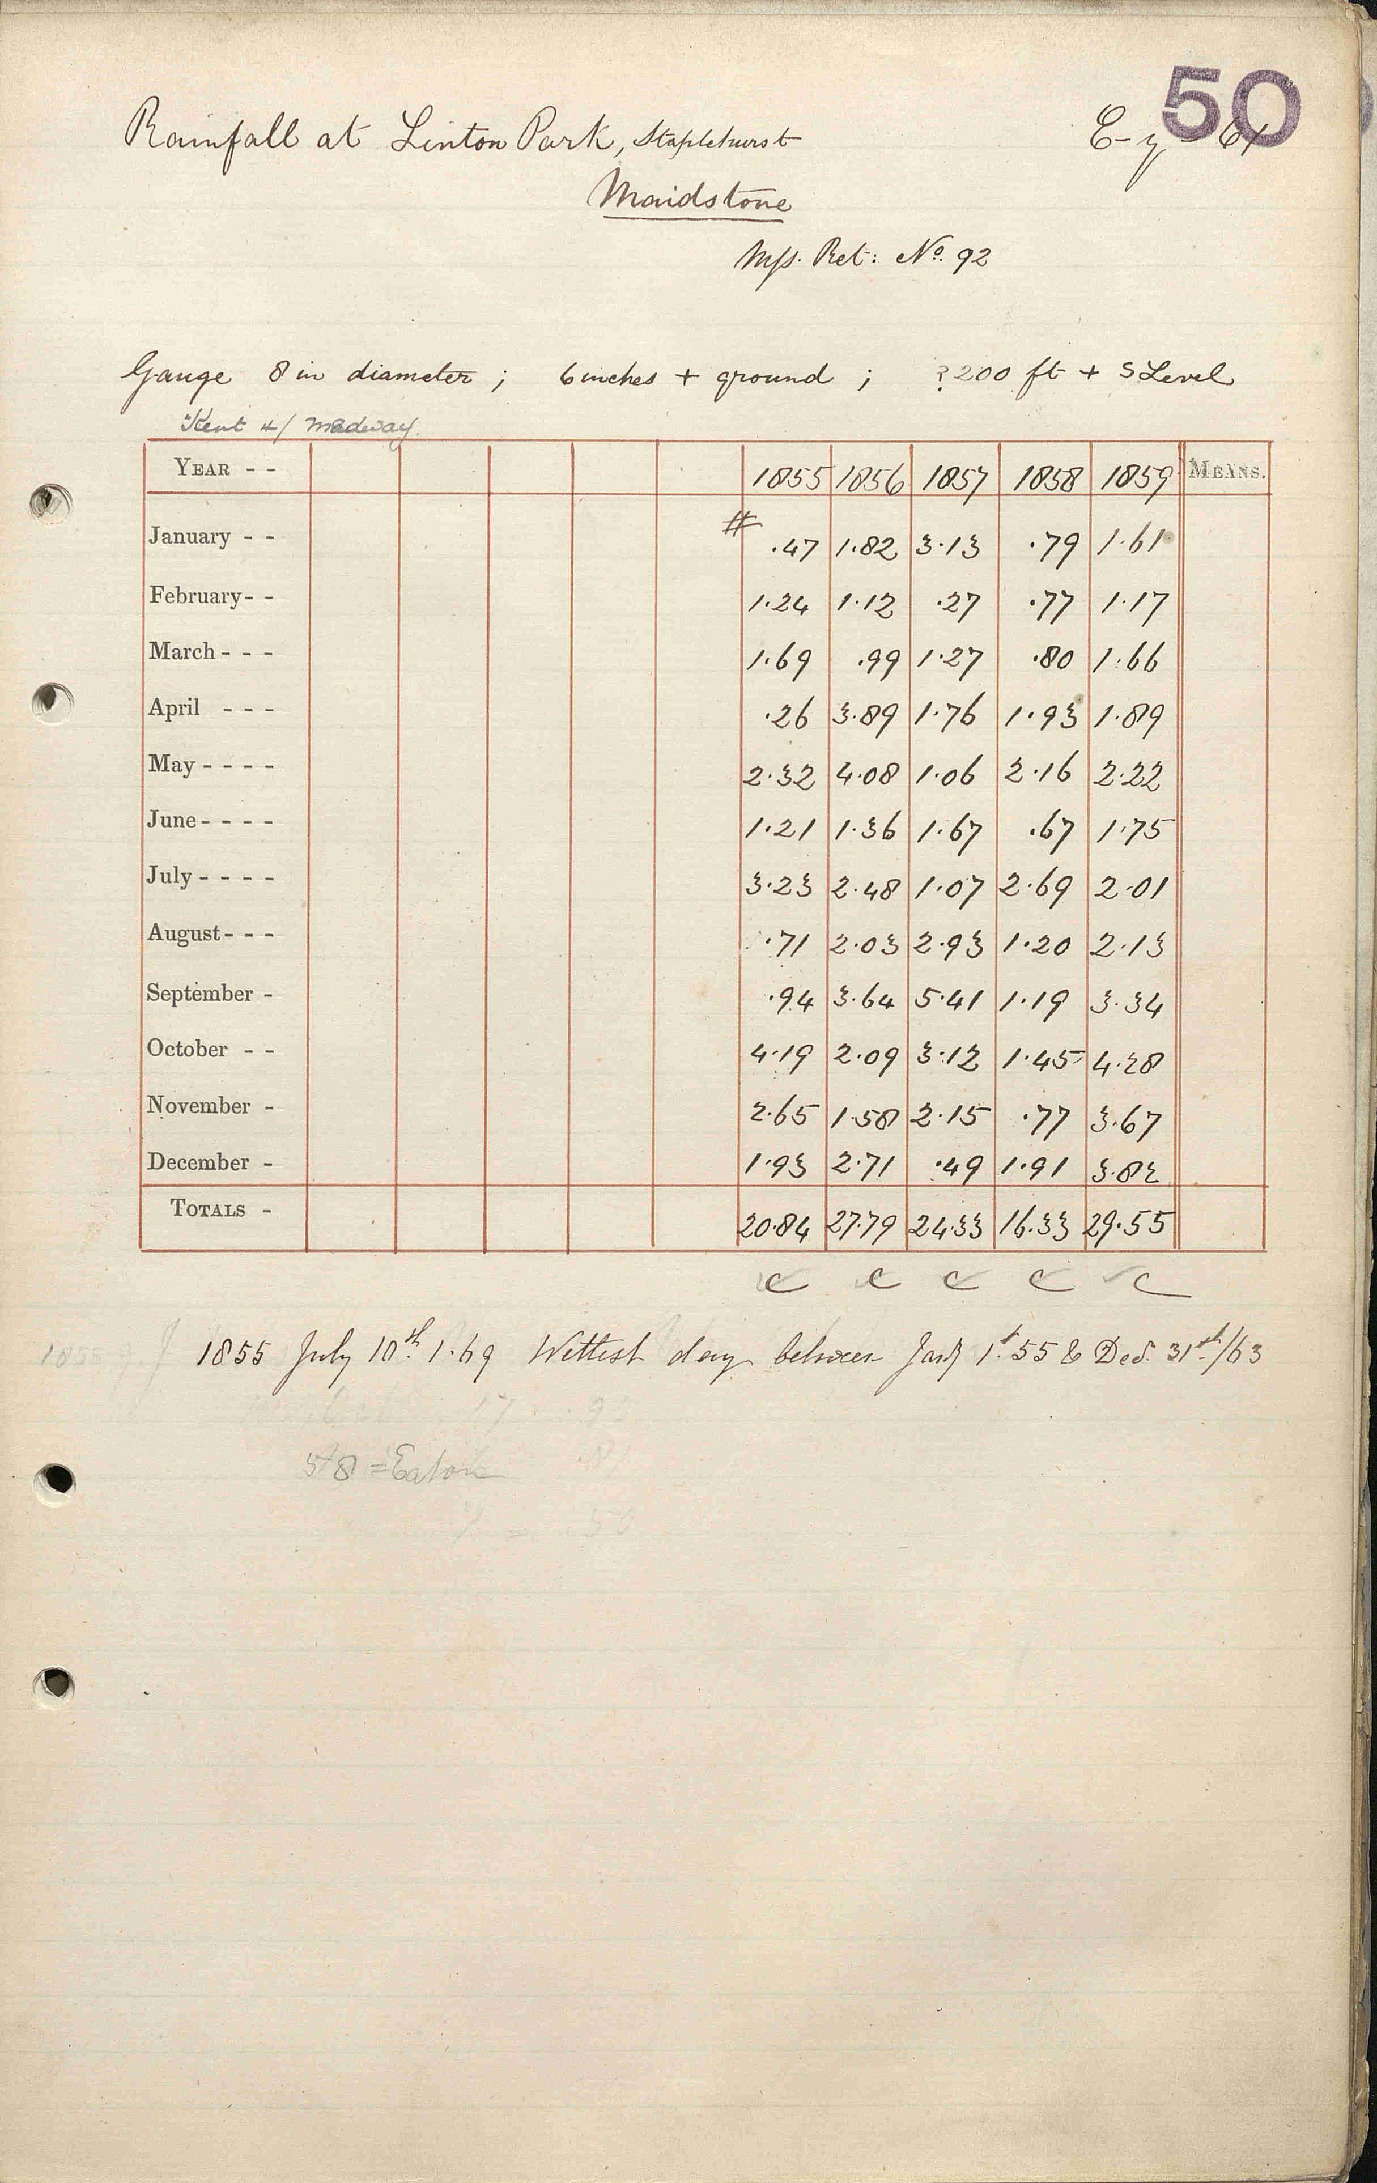 50
Rainfall at Linton Park, Staplehurst
Maidstone
Mss. Ret: No. 92
Gauge 8 in diameter; 6 inches + ground; ?200 ft + S Level
Kent Medway
YEAR - - 1855 1856 1857 1858 1859 MEANS.
January - - # .47 1.82 3.13 .79 1.61
February - - 1.24 1.12 .27 .77 1.17
March - - - 1.69 .99 1.27 .80 1.66
April - - - .26 3.89 1.76 1.93 1.89
May - - - - 2.32 4.08 1.06 2.16 2.22
June - - - - 1.21 1.36 1.67 .67 1.75
July - - - - 3.23 2.48 1.07 2.69 2.01
August - - - .71 2.03 2.93 1.20 2.13
September - .94 3.64 5.41 1.19 3.34
October - - 4.19 2.09 3.12 1.45 4.28
November - 2.65 1.58 2.15 .77 3.67
December - 1.93 2.71 .49 1.91 3.82
TOTALS - 20.84 27.79 24.33 16.33 29.55
c c c c c
1855 July 10th 1.69 Wettest day between Jany 1st 55 & Dec. 31st/63
= Eaton